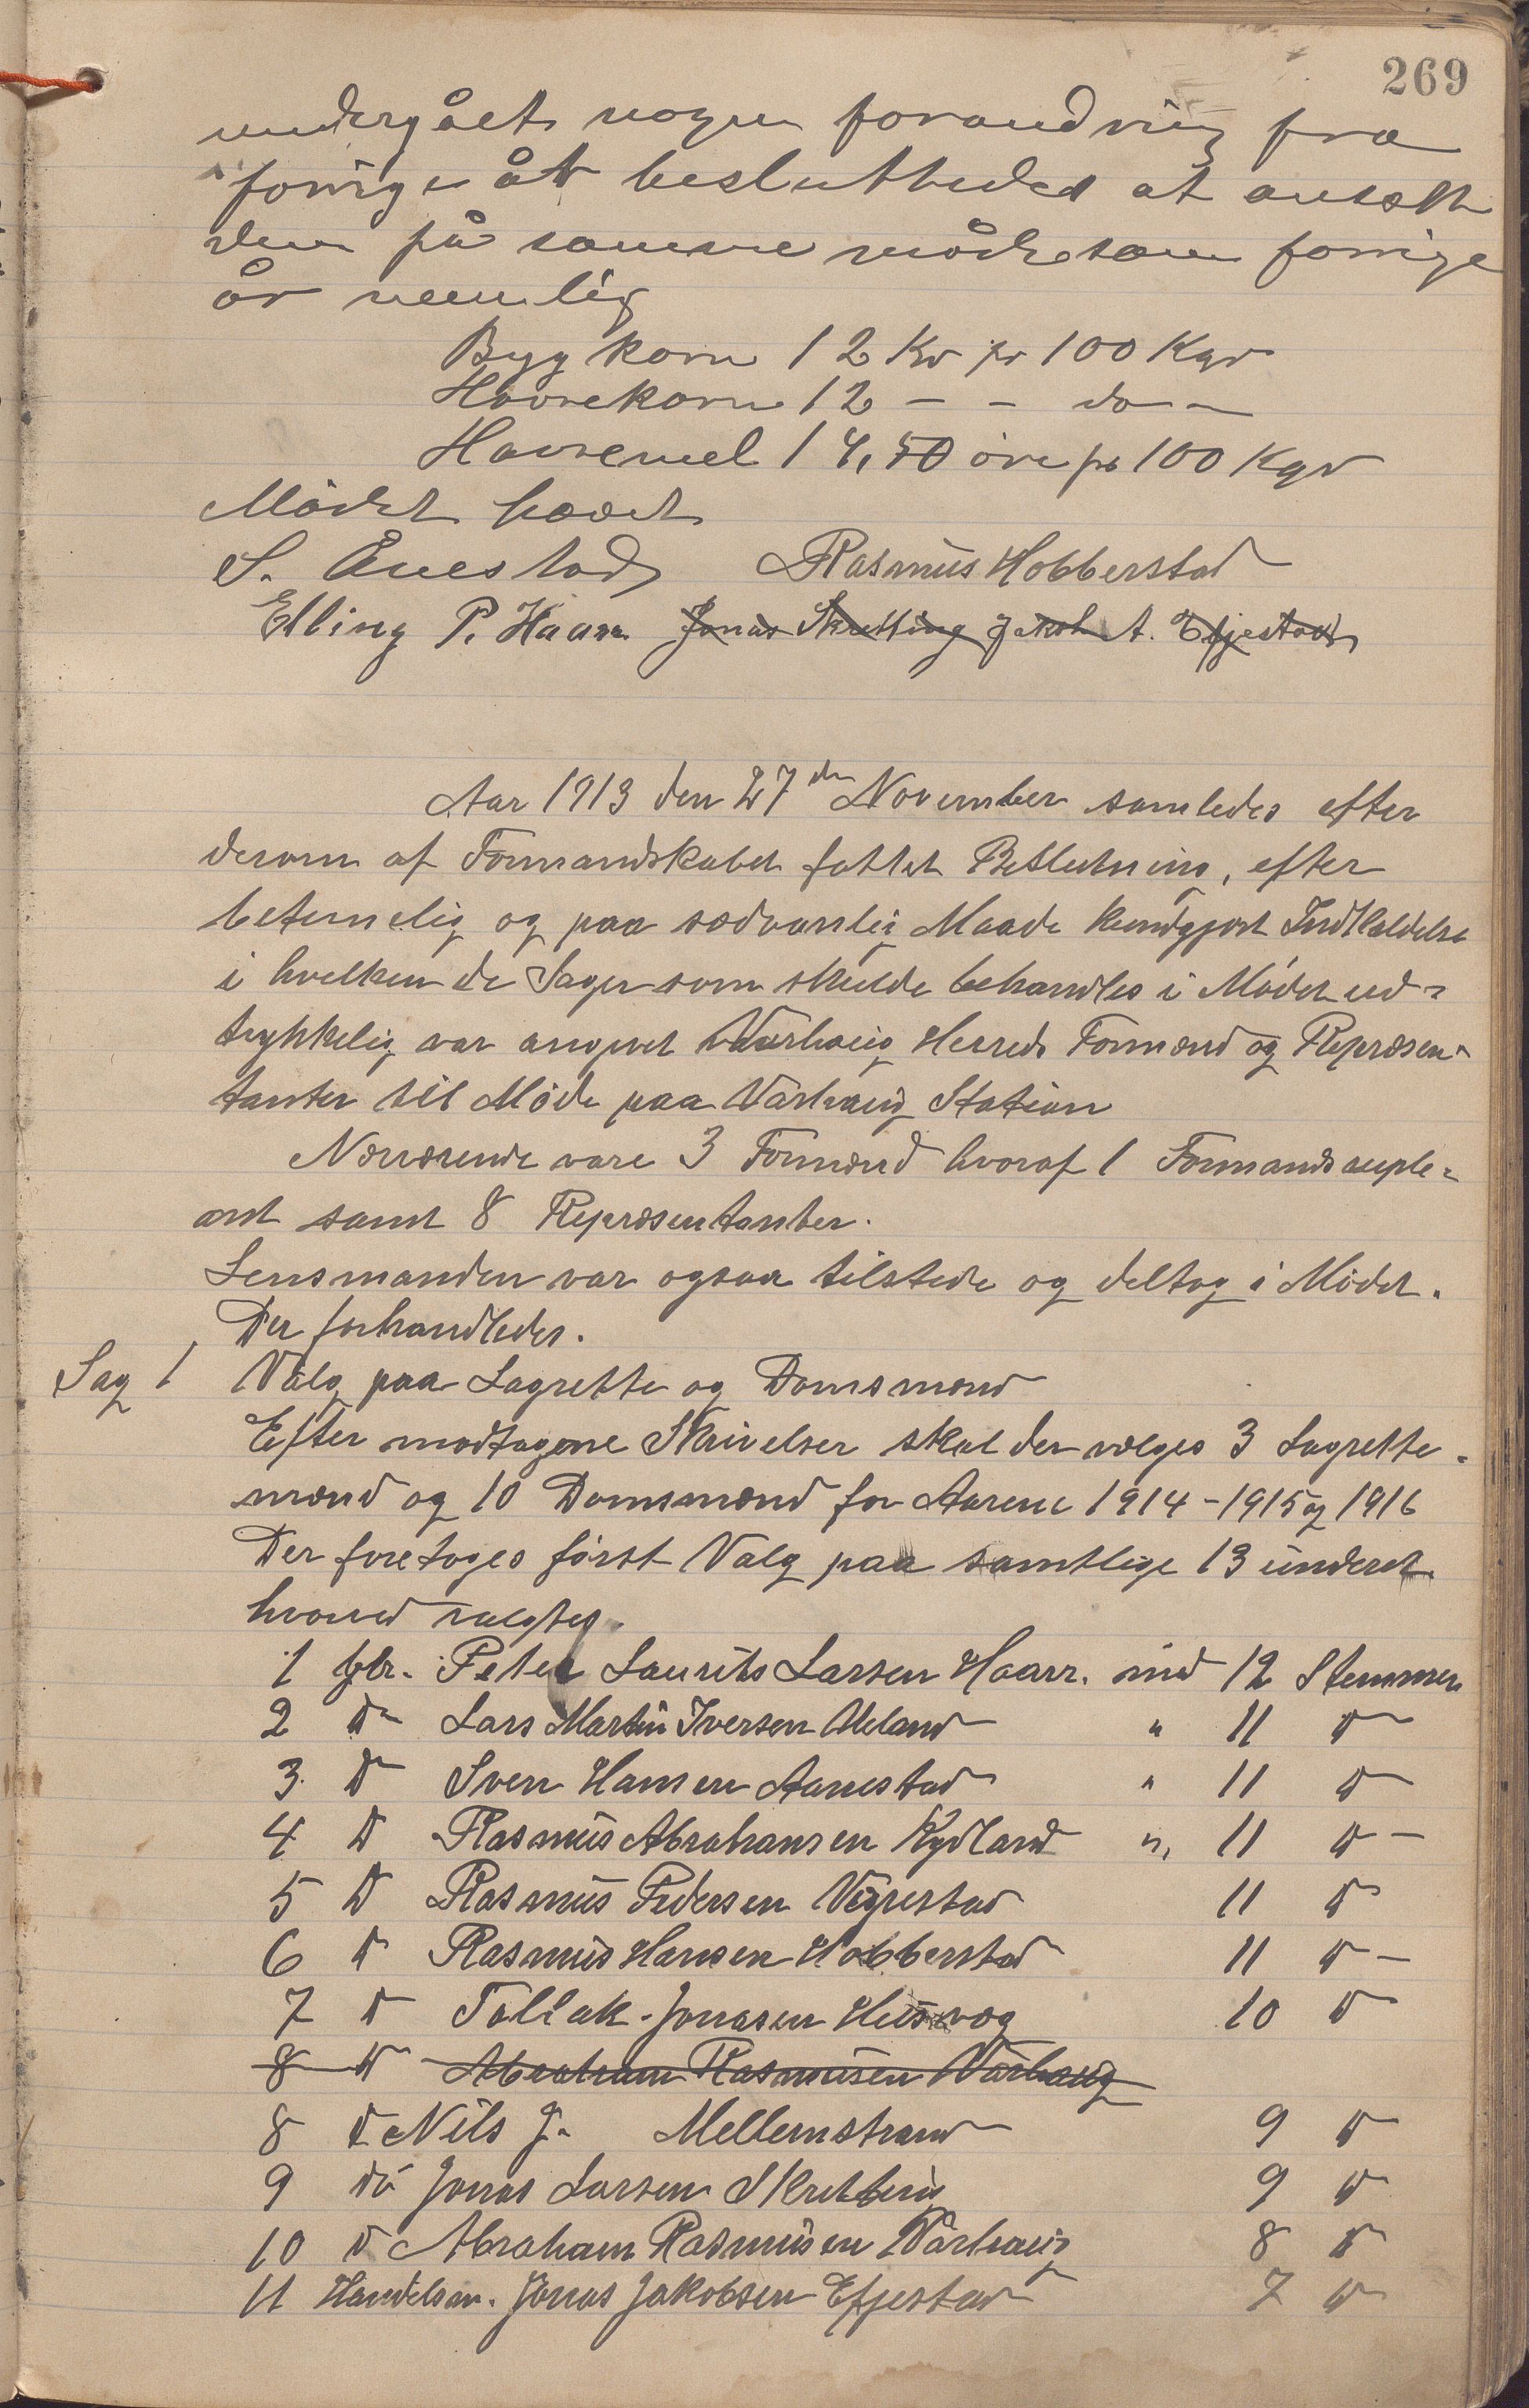 269
undergået nogen forandring fra
forrige år besluttedes at ansætte
den på samme måde som forrige
år nemlig
Bygkorn 12 Kr pr 100 Kgr
Havrekorn 12 - - do -
Havremel 14,50 øre pr 100 Kgr
Mödet hævet
S. Ånestad Rasmus Hobberstad
Elling P. Haarr Jonas Skretting Jakob A. Efjestad
Aar 1913 den 27de November samledes efter
derom af Formandskabet fattet Beslutning, efter
betimelig og paa sædvanlig Maade kundgjort Indkaldelse
i hvilken de Sager som skulde behandles i Mødet ud-
trykkelig var angivet Varhaug Herreds Formænd og Repræsen-
tanter til Møde paa Varhaug Station
Nærværende vare 3 Formænd hvoraf 1 Formandsuple-
ant samt 8 Repræsentanter.
Lensmanden var ogsaa tilstede og deltog i Mødet.
Der forhandledes.
Sag 1 Valg paa Lagrette og Domsmænd
Efter modtagene Skrivelser skal der vælges 3 Lagrette-
mænd og 10 Domsmænd for Aarene 1914-1915 og 1916
Der foretoges først Valg paa samtlige 13 underet
hvorved valgtes.
1 gbr. Peter Laurits Larsen Haarr. med 12 Stemmer
2 D Lars Martin Iversen Ueland " 11 D
3 D Sven Hansen Aanestad " 11 D
4 D Rasmus Abrahamsen Rydland " 11 D -
5 D Rasmus Pedersen Vigrestad 11 D
6 D Rasmus Hansen Hobberstad 11 D -
7 D Tollak Jonasen Husvæg 10 D
8 D Abraham Rasmusen Varhaug
8 D Nils J. Mellemstrand 9 D
9 Do Jonas Larsen Skretting 9 D
10 D Abraham Rasmusen Varhaug 8 D
11 Handelsm. Jonas Jakobsen Efjestad 7 D